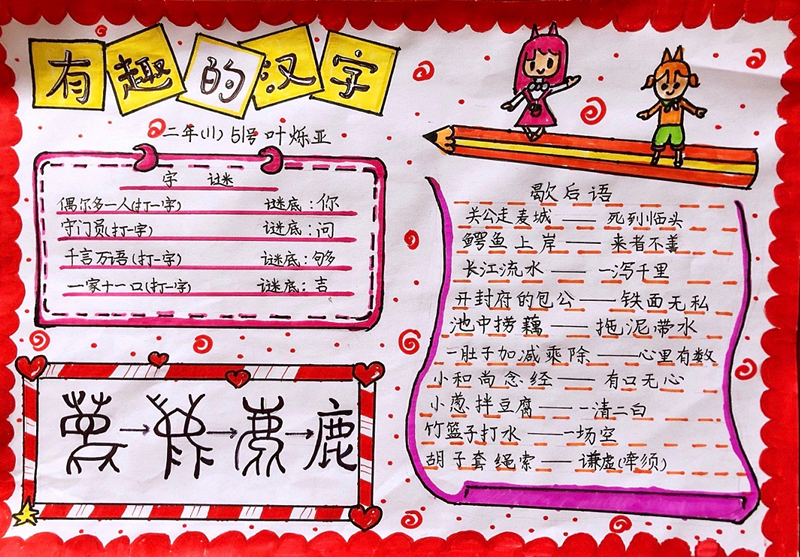 有趣的汉字
二年(11) 51号 叶烁亚
字 谜
偶尔多一人(打一字) 谜底:你
守门员(打一字) 谜底:问
千言万语(打一字) 谜底:够
一家十一口(打一字) 谜底:吉
鹿
歇后语
关公走麦城——死到临头
鳄鱼上岸——来者不善
长江流水——一泻千里
开封府的包公——铁面无私
池中捞藕——拖泥带水
一肚子加减乘除——心里有数
小和尚念经——有口无心
小葱拌豆腐——一清二白
竹篮子打水——一场空
胡子套绳索——谦虚(牵须)